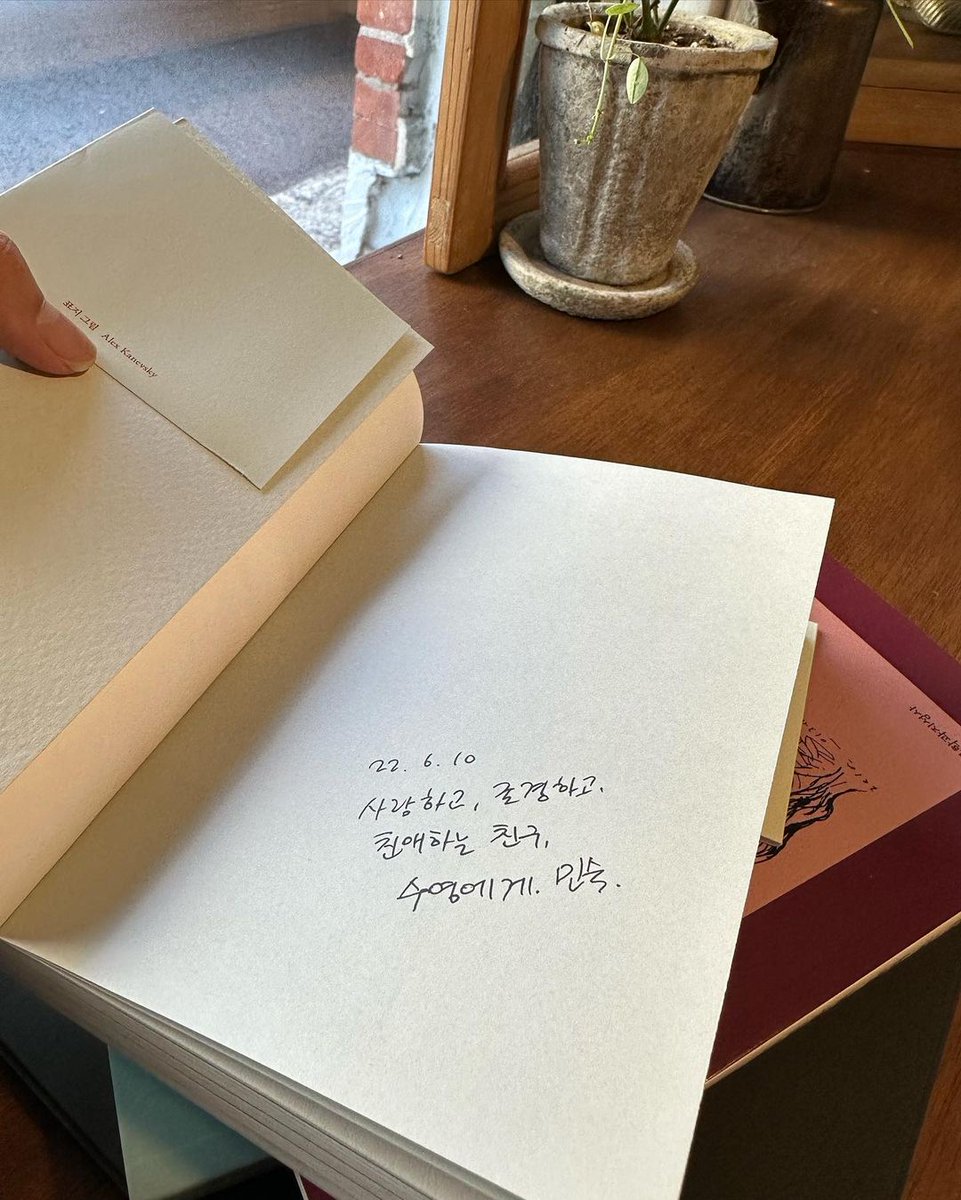 표지 그림 Alex Kanevsky
22. 6. 10
사랑하고, 존경하고.
친애하는 친구,
수영에게. 민숙.